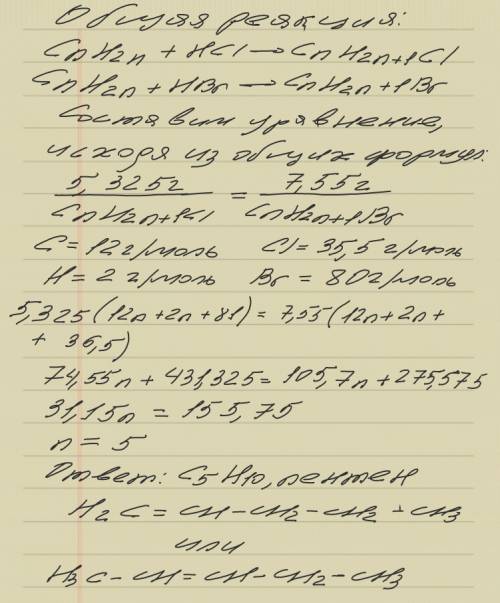 Общая реакция:
CnH2n + HCl → CnH2n+1Cl
CnH2n + HBr → CnH2n+1Br
Составим уравнение,
исходя из общих формул:
5,325г / CnH2n+1Cl = 7,55г / CnH2n+1Br
C = 12 г/моль Cl = 35,5 г/моль
H = 2 г/моль Br = 80 г/моль
5,325(12n + 2n + 81) = 7,55(12n + 2n +
+ 36,5)
74,55n + 431,325 = 105,7n + 275,575
31,15n = 155,75
n = 5
Ответ: C5H10, пентен
H2C = CH - CH2 - CH2 - CH3
или
H3C - CH = CH - CH2 - CH3